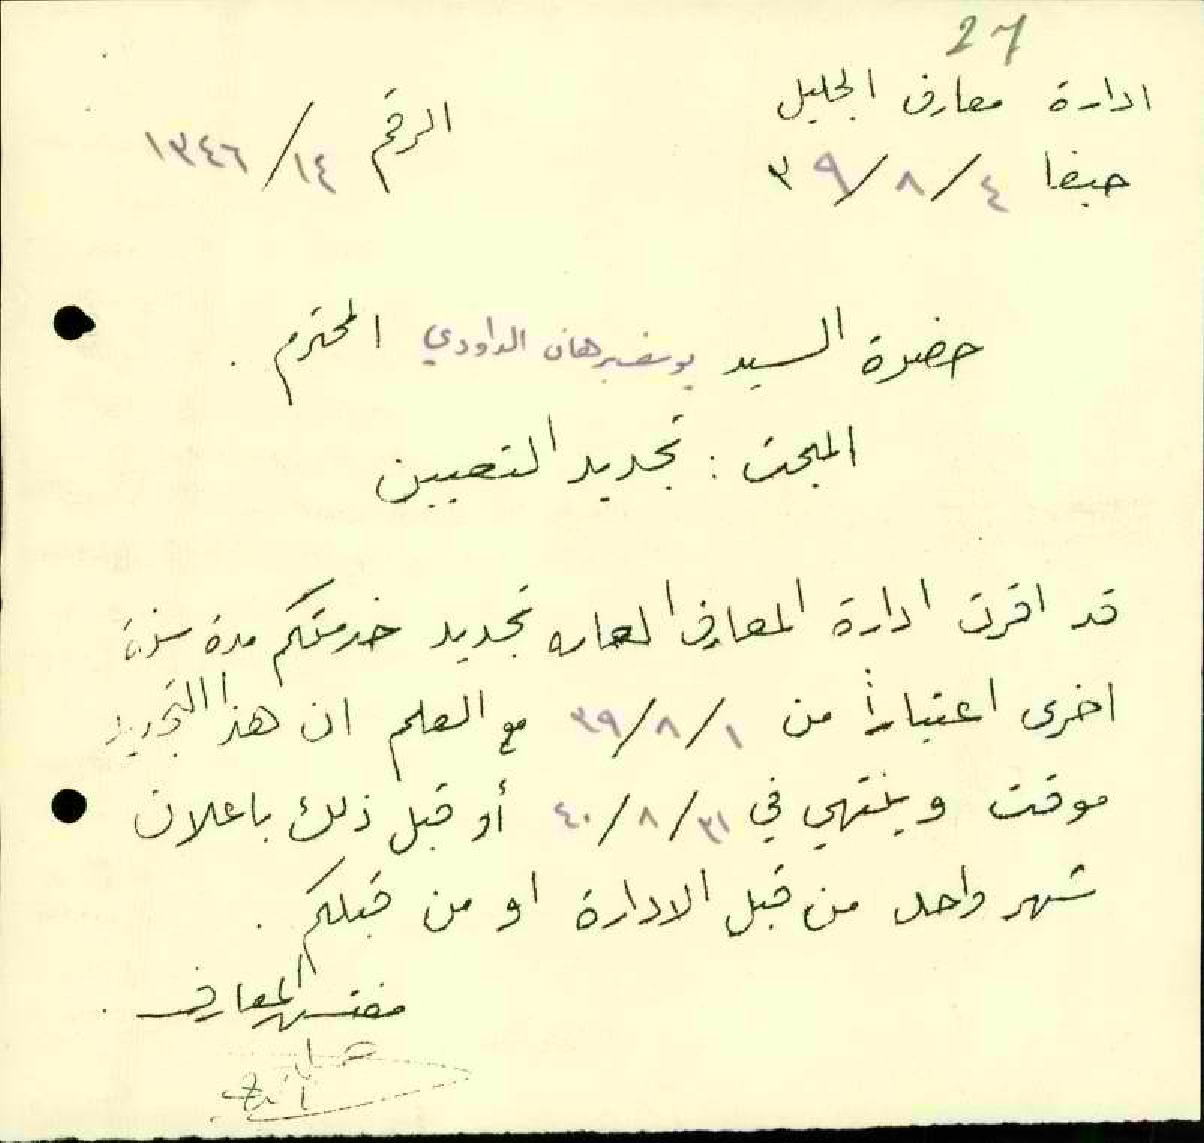 27
ادارة معارف الجليل
الرقم ١٤/١٣٤٦
حيفا ٤/٨/٣٩
حضرة السيد يوسف برهان الداودي المحترم .
المبحث : تجديد التعيين
قد اقرت ادارة المعارف العامه تجديد خدمتكم مدة سنة
اخرى اعتباراً من ١/٨/٣٩ مع العلم ان هذا التجديد
موقت وينتهي في ٣١/٨/٤٠ أو قبل ذلك باعلان
شهر واحد من قبل الادارة او من قبلكم .
مفتش المعارف .